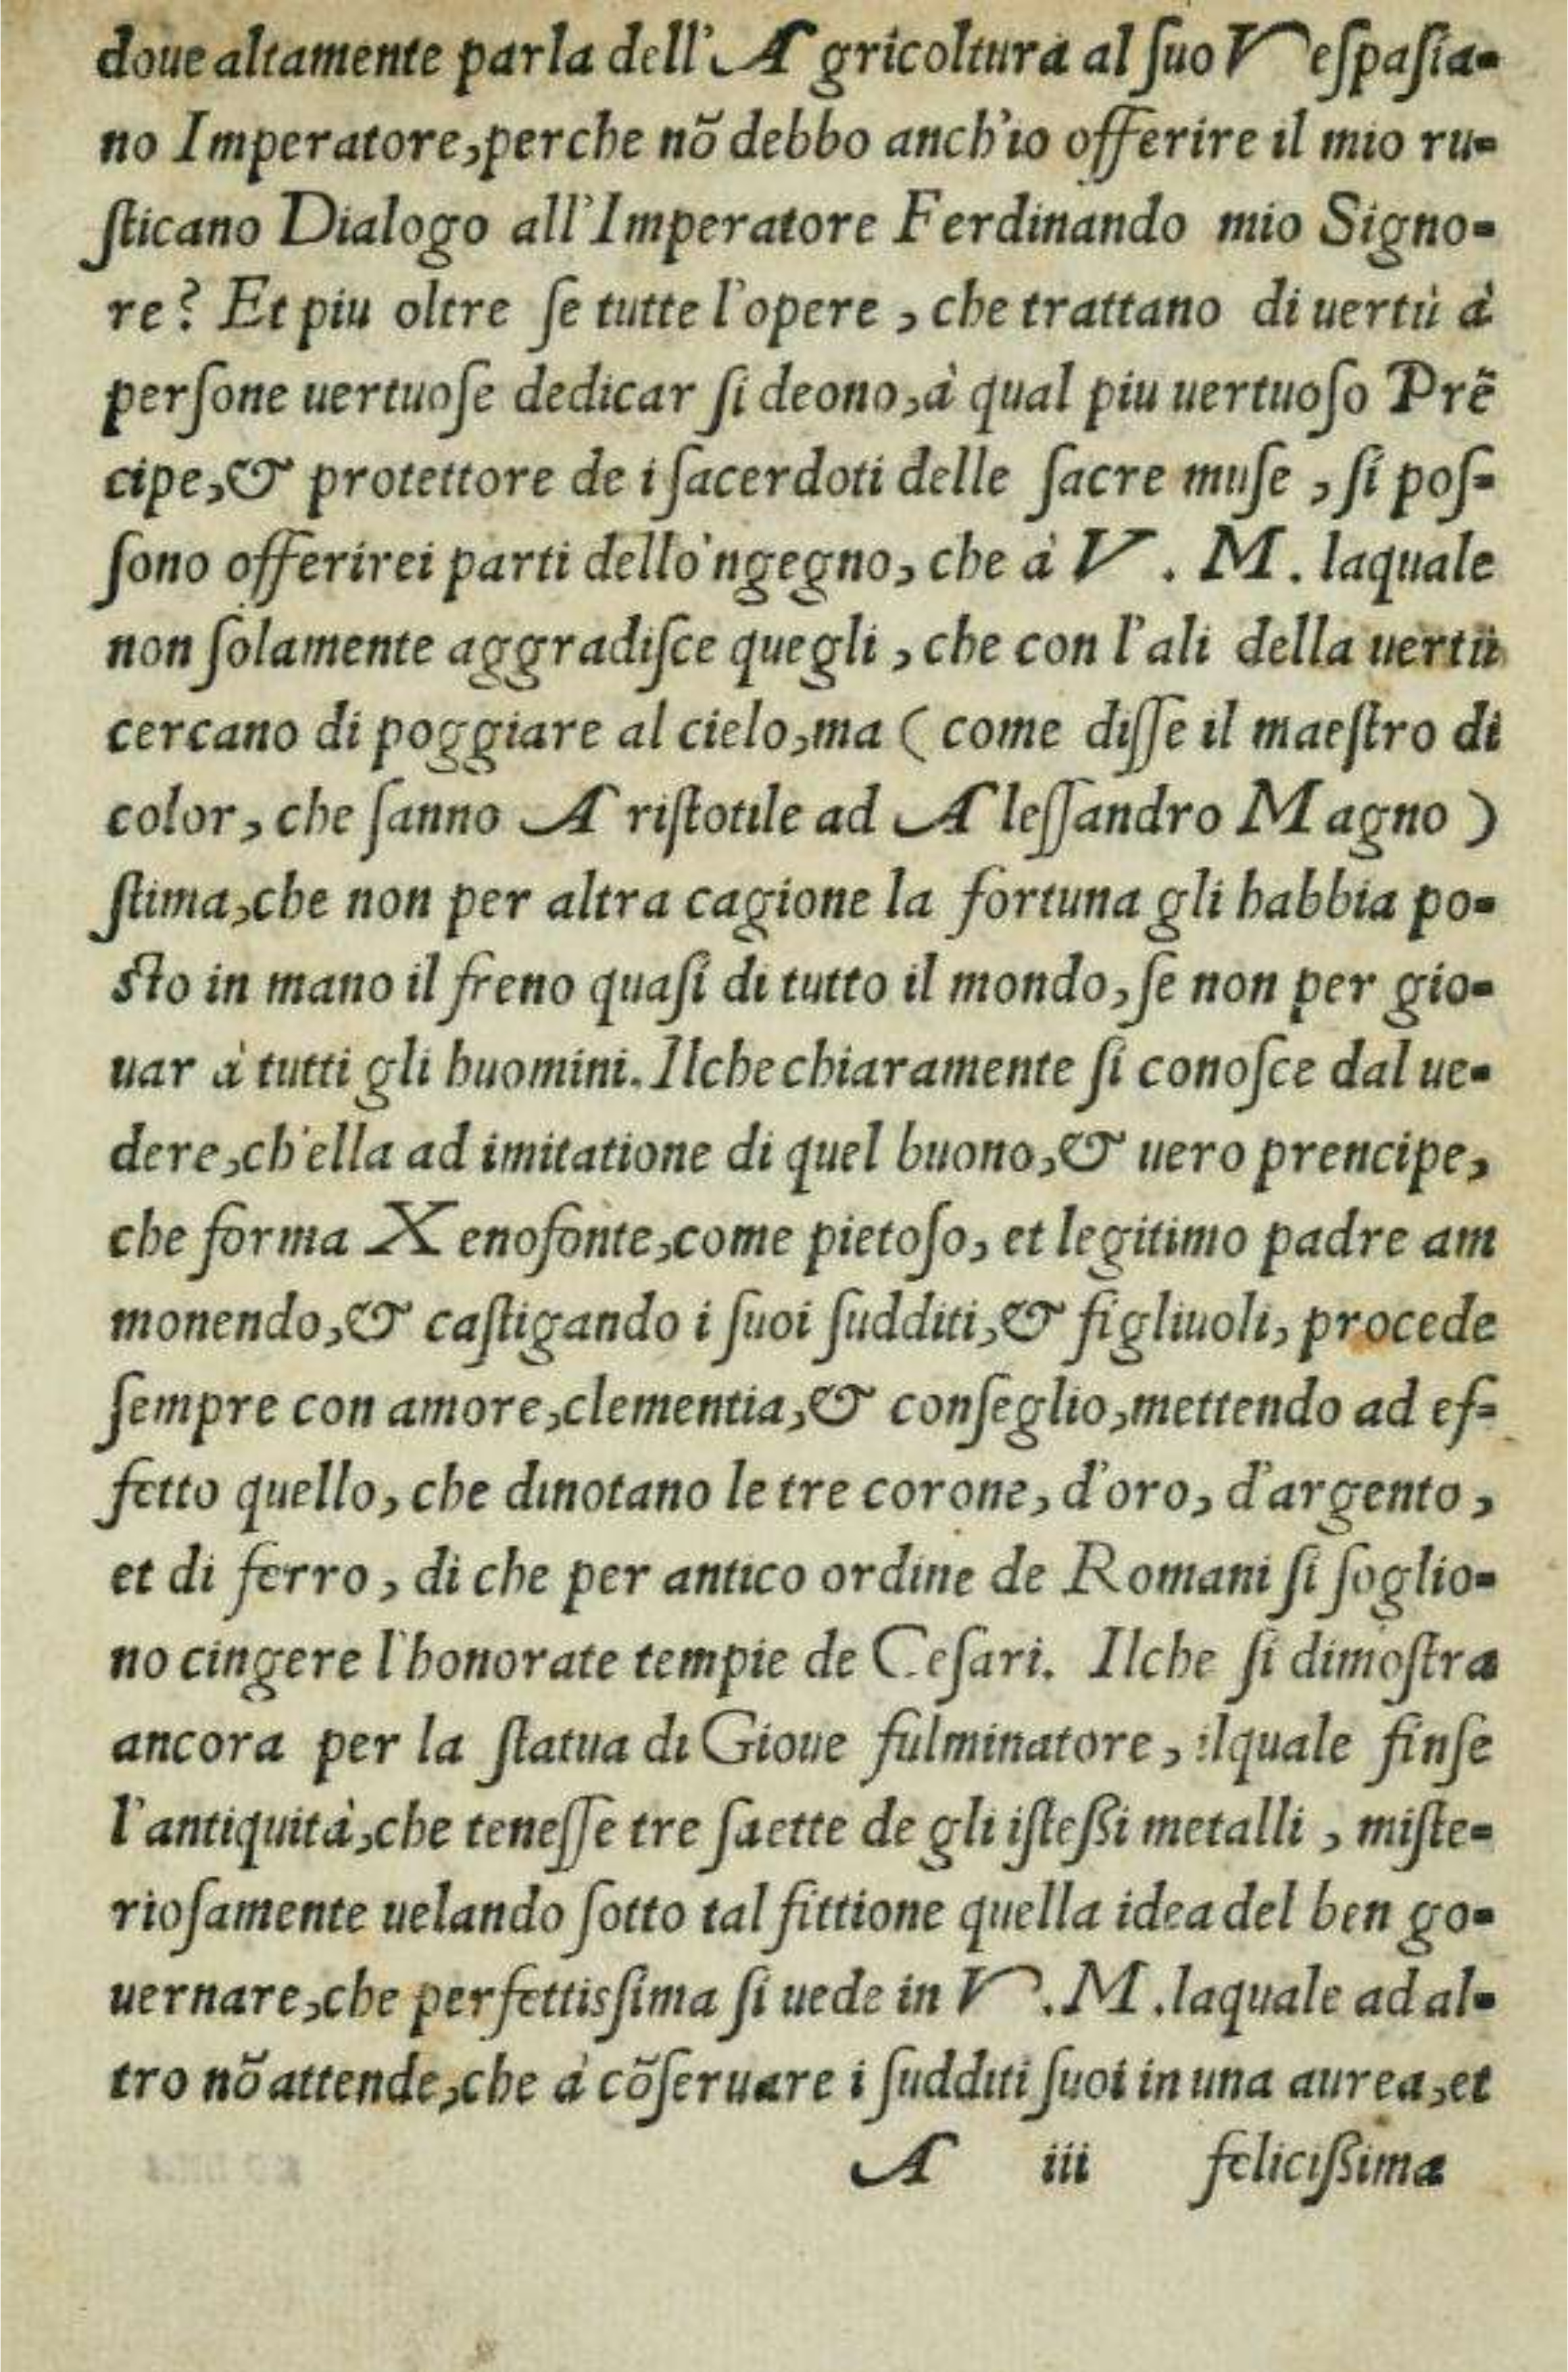 doue altamente parla dell'Agricoltura al ſuo Veſpaſia-
no Imperatore,perche nõ debbo anch'io offerire il mio ru-
ſticano Dialogo all'Imperatore Ferdinando mio Signo-
re? Et piu oltre ſe tutte l'opere , che trattano di uertù à
perſone uertuoſe dedicar ſi deono,à qual piu uertuoſo Prẽ
cipe,& protettore de i ſacerdoti delle ſacre muſe , ſi poſ-
ſono offerirei parti dello'ngegno, che à V. M. laquale
non ſolamente aggradiſce quegli , che con l'ali della uertù
cercano di poggiare al cielo,ma ( come diſſe il maeſtro di
color, che ſanno Ariſtotile ad Aleſſandro Magno )
ſtima,che non per altra cagione la fortuna gli habbia po-
sto in mano il freno quaſi di tutto il mondo, ſe non per gio-
uar à tutti gli huomini. Ilche chiaramente ſi conoſce dal ue-
dere,ch'ella ad imitatione di quel buono,& uero prencipe,
che forma Xenofonte,come pietoſo, et legitimo padre am
monendo,& caſtigando i ſuoi ſudditi,& figliuoli, procede
ſempre con amore,clementia,& conſeglio,mettendo ad ef-
fetto quello, che dinotano le tre corone, d'oro, d'argento ,
et di ferro , di che per antico ordine de Romani ſi ſoglio-
no cingere l'honorate tempie de Ceſari. Ilche ſi dimoſtra
ancora per la ſtatua di Gioue fulminatore , ilquale finſe
l'antiquità,che teneſſe tre ſaette de gli iſteßi metalli , miſte-
rioſamente uelando ſotto tal fittione quella idea del ben go-
uernare,che perfettisſima ſi uede in V.M.laquale ad al-
tro nõ attende,che à cõſeruare i ſudditi ſuoi in una aurea,et
A iii feliciſſima